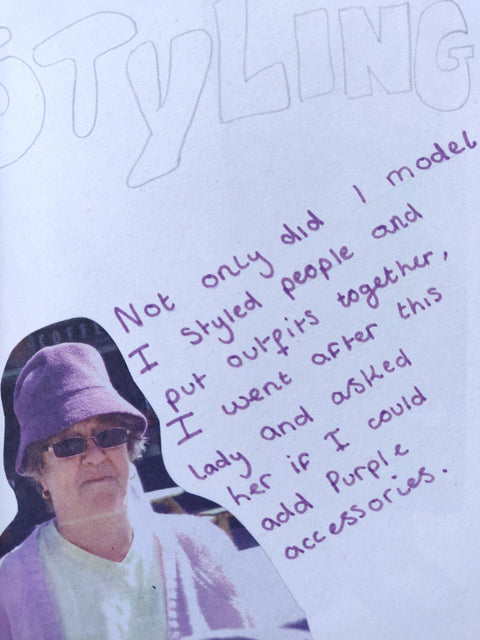 STYLING
Not only did I model
I styled people and
put outfits together,
I went after this
lady and asked
her if I could
add Purple
accessories.